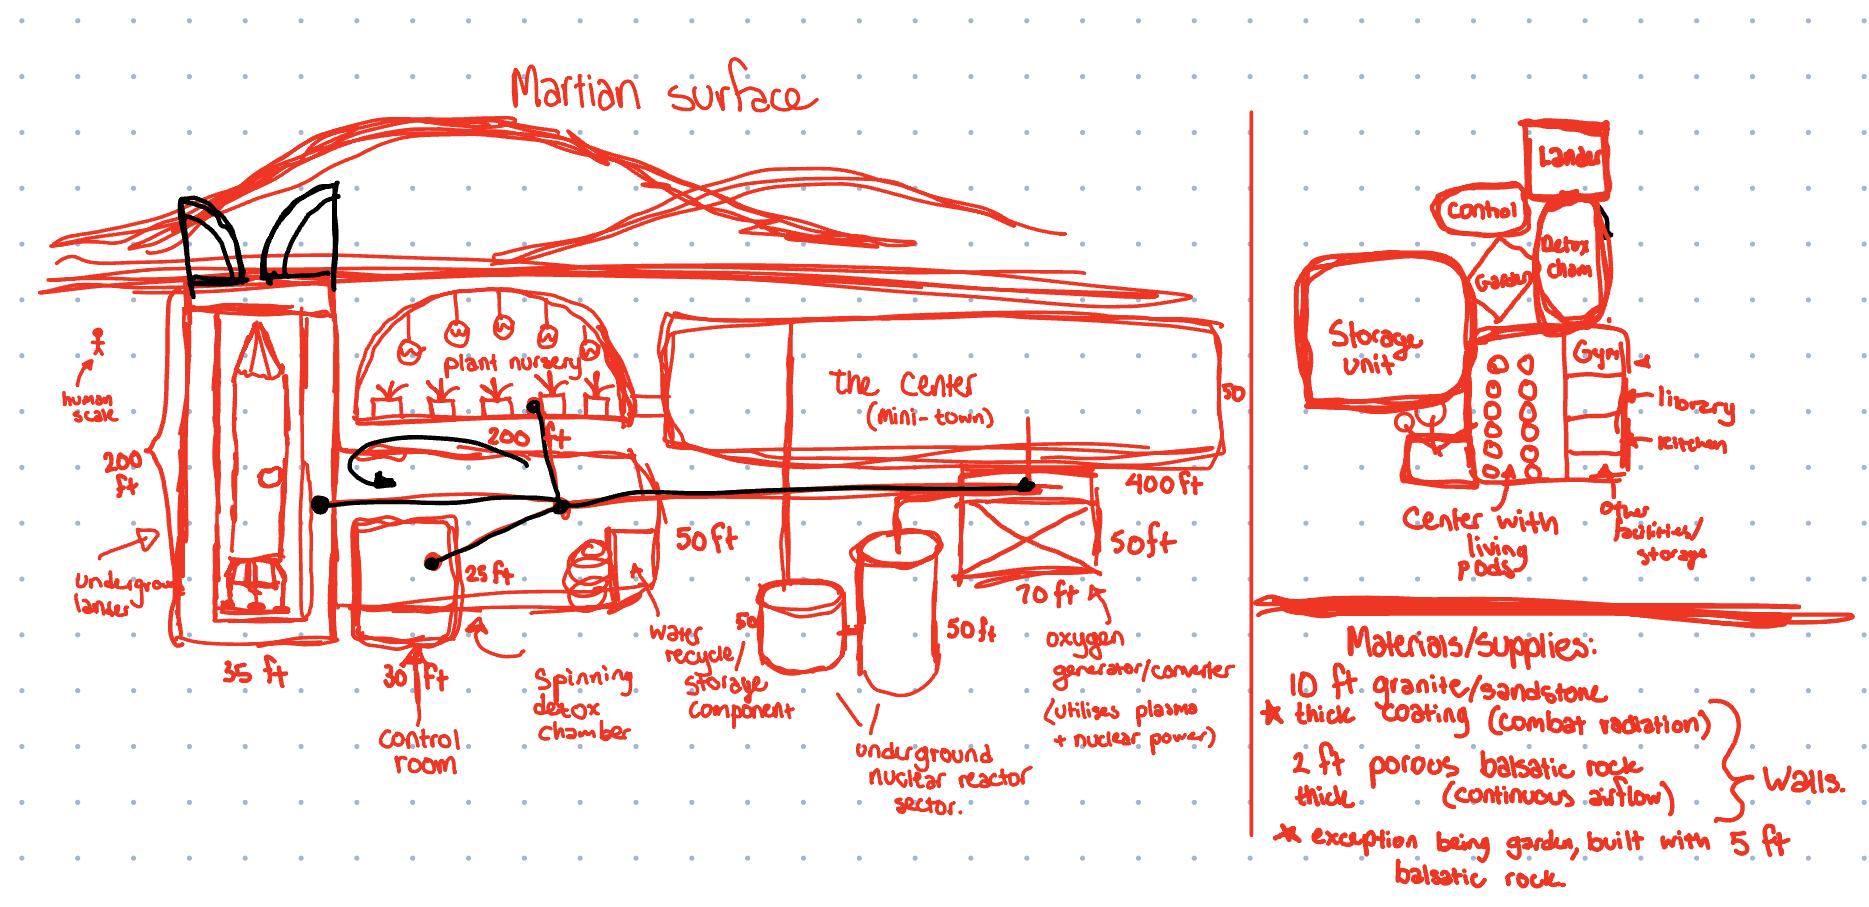 Martian surface
human
scale
200
ft
Underground
lander
35 ft
plant nursery
200 ft
25 ft
30 ft
control
room
Spinning
detox
chamber
50 ft
water
recycle/
storage
component
the center
(mini-town)
50
400 ft
50
50 ft
underground
nuclear reactor
sector.
50ft
70 ft
oxygen
generator/converter
(utilises plasma
+ nuclear power)
Lander
Control
Detox
cham
Garden
Storage
unit
Gym
library
kitchen
Center with
living
pods
other
facilities/
storage
Materials/Supplies:
10 ft granite/sandstone
* thick coating (combat radiation)
2 ft porous balsatic rock
thick (continuous airflow)
Walls.
* exception being garden, built with 5 ft
balsatic rock.